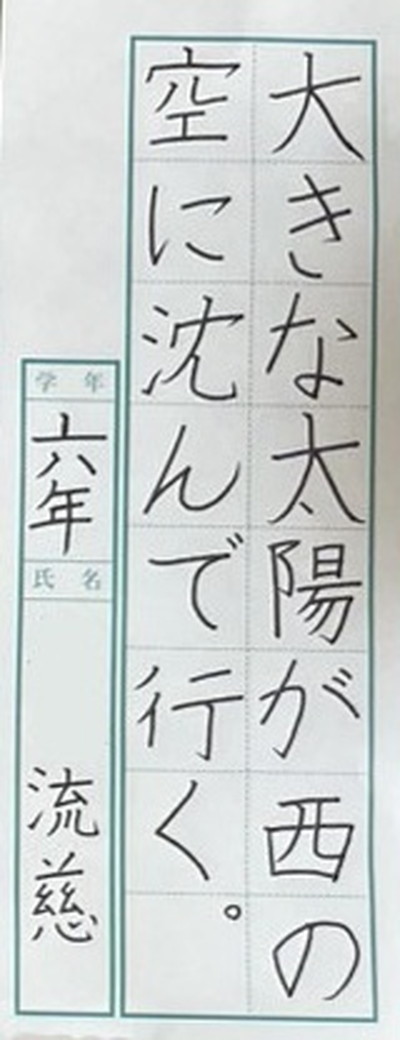 大きな太陽が西の
空に沈んで行く。
学年
六年
氏名
流慈